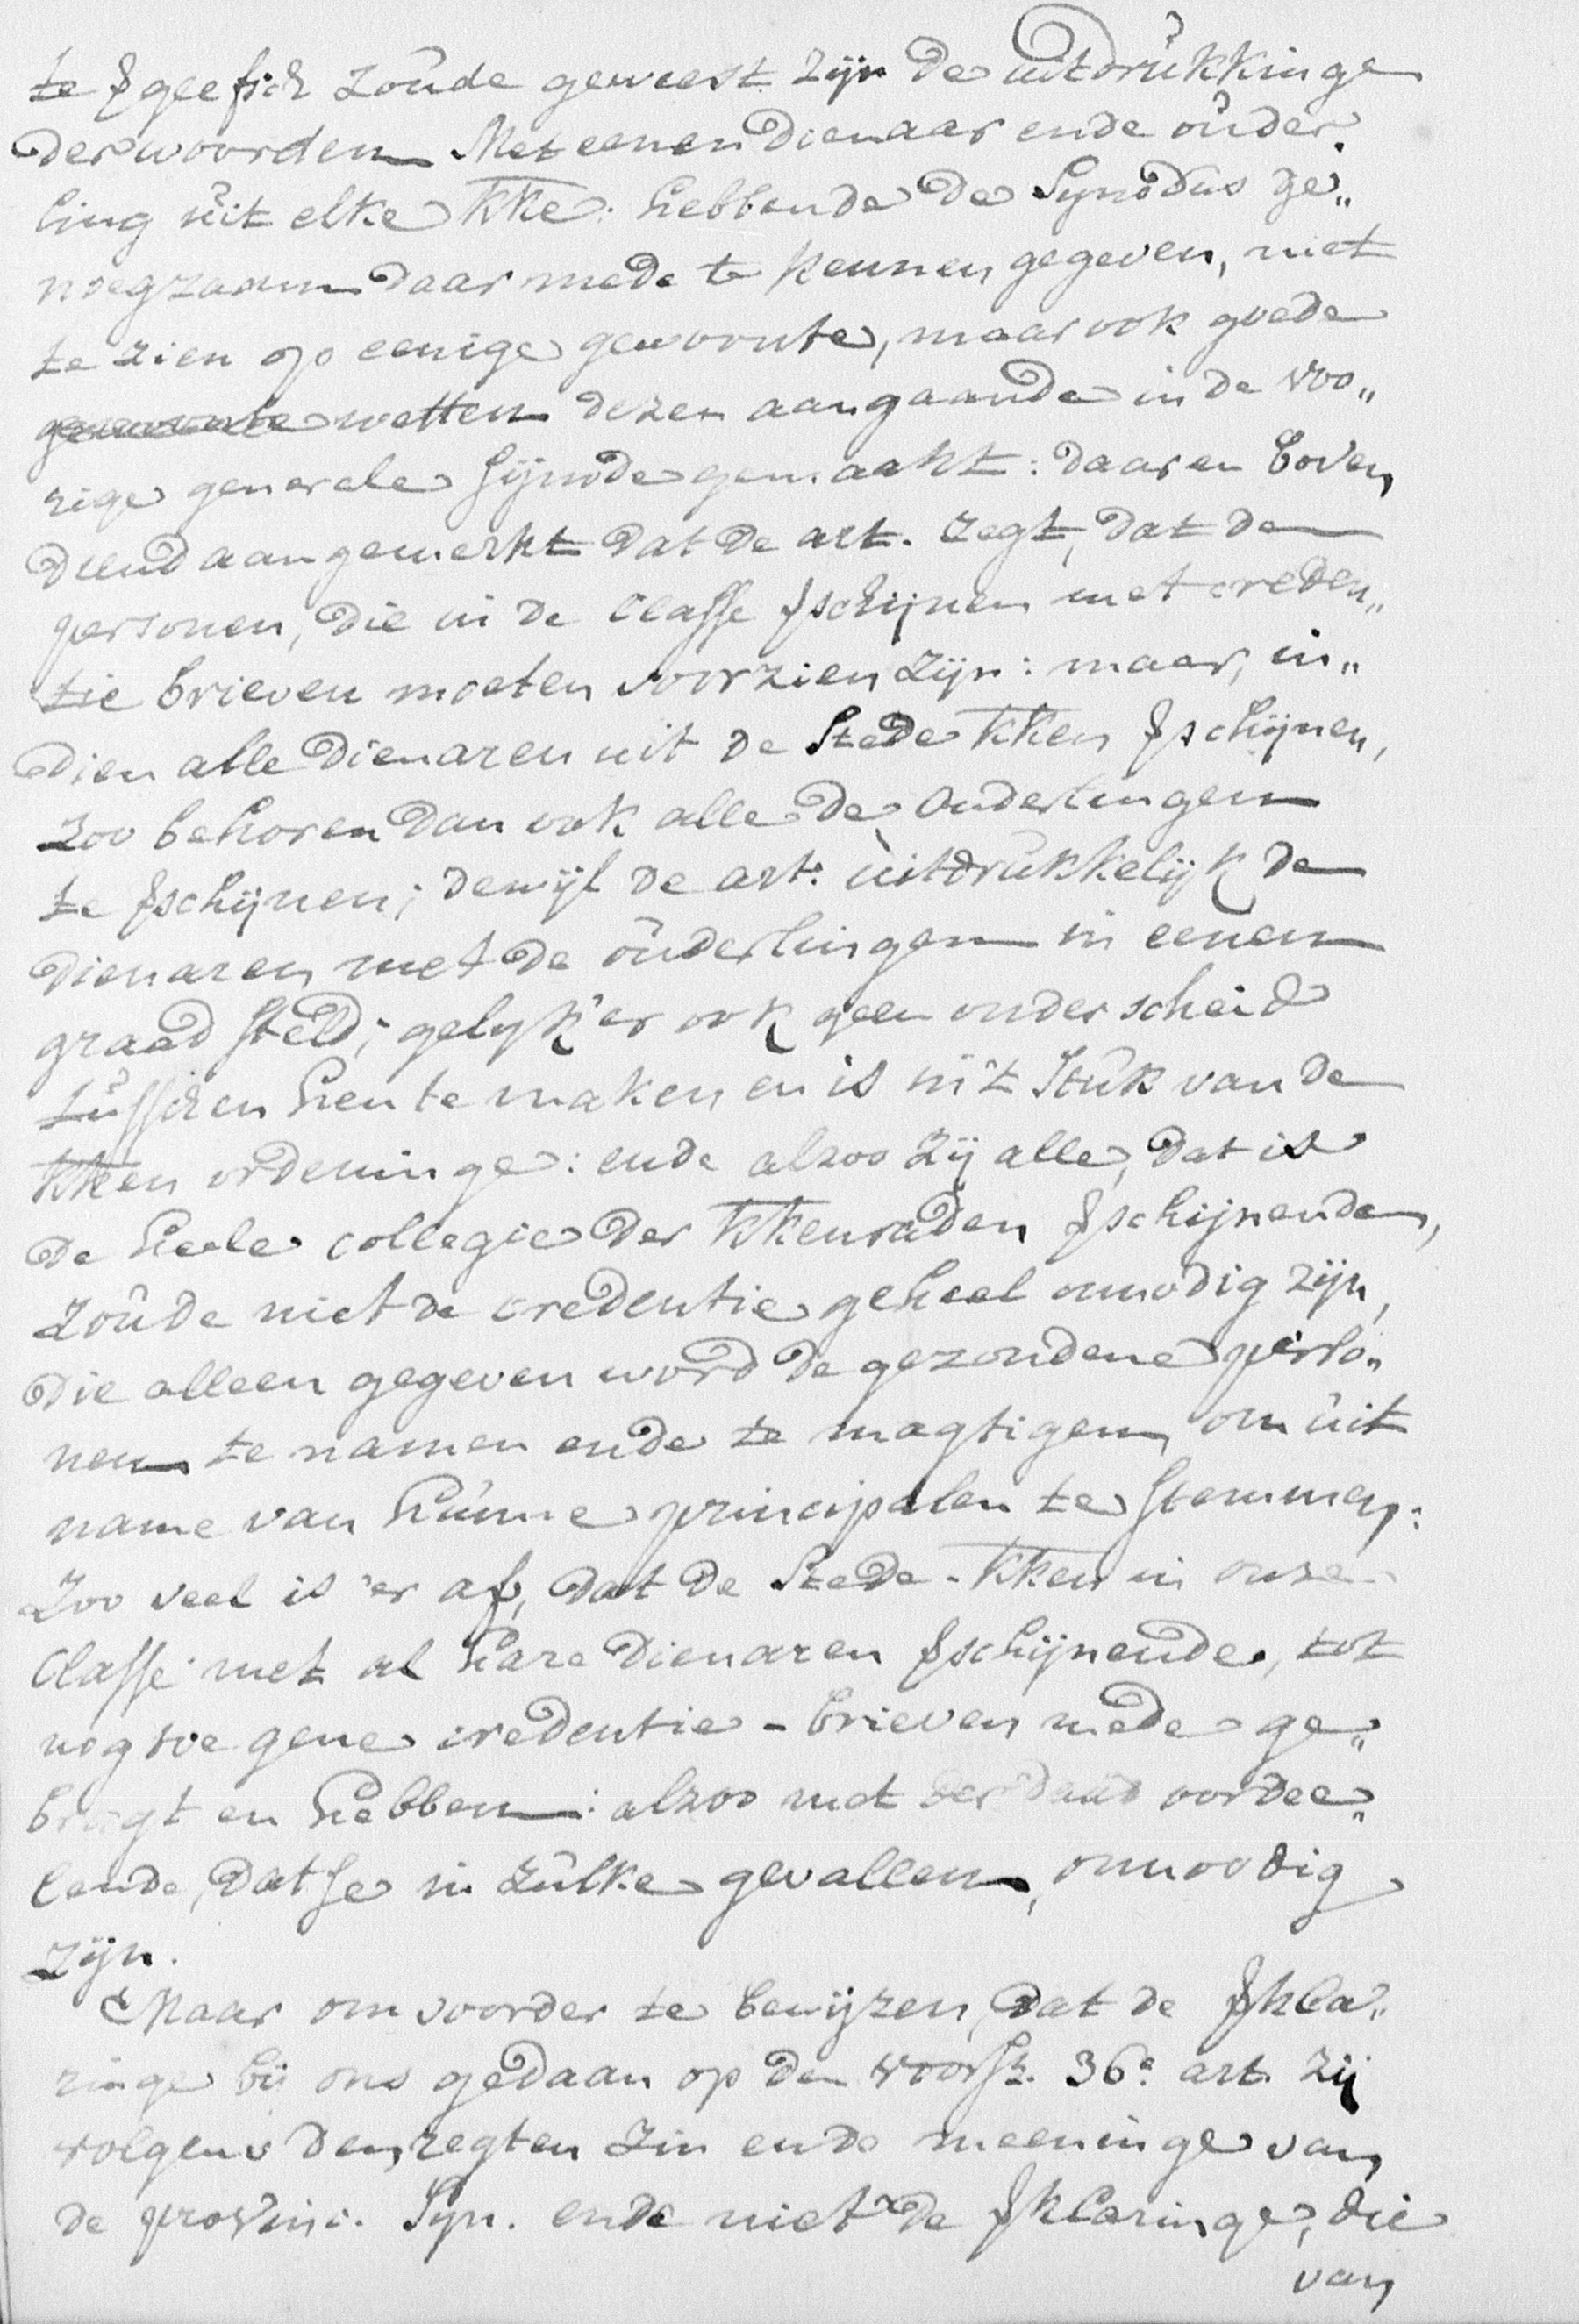 te vgeefsch zoude geweest zijn de uitdrukkinge
der woorden Met eenen dienaar ende ouder„
ling uit elke kke: hebbende de Synodus ge„
noegzaam daar mede te kennen gegeven, niet
te zien op eenige gewoonte, maar ook goede
gewoonte wetten dezen aangaande in de voo„
rige generale Synode gemaakt: daar en boven
diend aangemerkt dat de art. zegt, dat de
personen, die in de Classe vschijnen met creden„
tie brieven moeten voorzien zijn: maar, in„
dien alle dienaren uit de Stede kken vschijnen,
zoo behoren dan ook alle de Ouderlingen
te vschijnen; dewijl de art: uitdrukkelijk de
dienaren met de ouderlingen in eenen
graad steld; gelyk 'er ook geen onderscheid
tusschen hen te maken en is in 't stuk van de
kken ordeninge: ende alzoo zij alle, dat is
de heele collegie der kkenraden vschijnende,
zoude niet de credentie geheel onnodig zijn,
die alleen gegeven word de gezondene perso„
nen te namen ende te magtigen, om uit
name van hunne principalen te stemmen:
Zoo veel is 'er af, dat de Stede-kken in onze
Classe met al hare dienaren vschijnende, tot
nog toe gene credentie-brieven mede ge„
bragt en hebben: alzoo met der daad oordee„
lende, dat se in zulke gevallen, onnoodig
zijn.
Maar om voorder te bewijzen, dat de vkla„
ringe bij ons gedaan op den voorsz. 36e art. zij
volgens den regten zin ende meeninge van
de provinc. Syn. ende niet de vklaringe, die
van